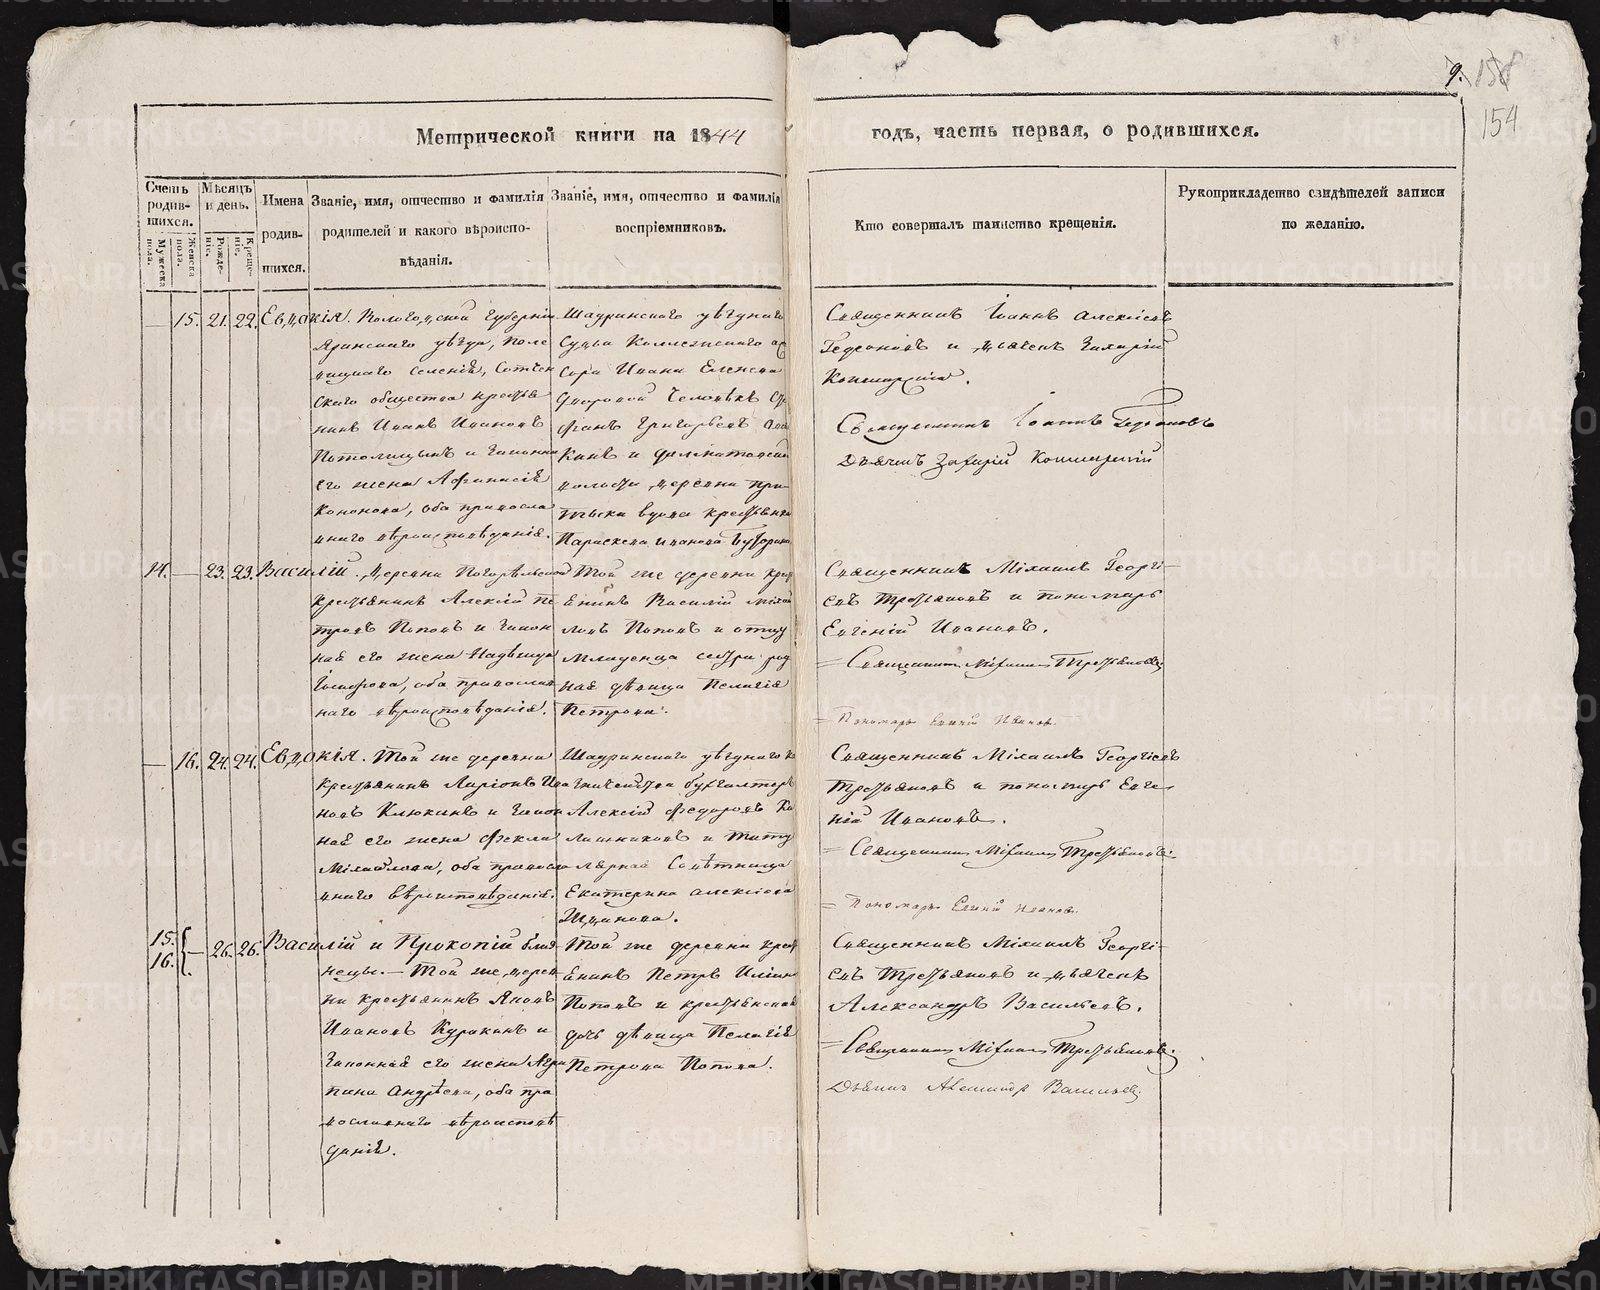 9. 158
154
Метрической книги на 1844 годъ, часть первая, о родившихся.
Счетъ родив-шихся.
Мужеска пола.
Женска пола.
Мѣсяцъ и день.
Рожде-ніе.
Креще-ніе.
Имена родив-шихся.
Званіе, имя, отчество и фамилія
родителей и какого вѣроиспо-
вѣданія.
Званіе, имя, отчество и фамилія
воспріемниковъ.
Кто совершалъ таинство крещенія.
Рукоприкладство свидѣтелей записи
по желанію.
— 15. 21. 22. Евдокія.
Вологодской Губерніи
Яренскаго уѣзда,
селенія,
скаго общества кресть
нинъ Иванъ Ивановъ
и законна
его жена Афанасія
Кононова, оба правосла
внаго вѣроисповѣданія.
Шадринскаго уѣзднаго
Судьи Коллежскаго ас
сора Ивана
дворовой человѣкъ Сте
фанъ Григорьевъ
и
волости деревни
вдова крестьянка
Параскева Иванова
Священникъ Іоаннъ Алексіевъ
Гедеоновъ и дьячекъ Захарій
Священникъ Іоаннъ Гедеоновъ
Дьячекъ Захарій
14. — 23. 23. Василій.
Деревни Погорѣльской
Крестьянинъ Алексій Пе
тровъ Поповъ и закон
ная его жена Надежда
Іосифова, оба православ
наго вѣроисповѣданія.
Той же деревни крест
янинъ Василій Михай
ловъ Поповъ и отцу
младенца сестра род
ная дѣвица Пелагія
Петрова.
Священникъ Михаилъ Георгі-
евъ Третьяковъ и пономарь
Евгеній Ивановъ.
= Священникъ Михаилъ Третьяковъ
= Пономарь Евгеній Ивановъ.
— 16. 24. 24. Евдокія.
Той же деревни
крестьянинъ Ларіонъ Ива
новъ Клюкинъ и закон
ная его жена Фекла
Михайлова, оба правосла
внаго вѣроисповѣданія.
Шадринскаго уѣзднаго к
азначейства бухгалтеръ
Алексій Федоровъ Ка
лашниковъ и титу
лярная Совѣтница
Екатерина Алексіева
Священникъ Михаилъ Георгіевъ
Третьяковъ и пономарь Евге-
ній Ивановъ.
= Священникъ Михаилъ Третьяковъ
= Пономарь Евгеній Ивановъ.
15. 16. — 26. 26. Василій и Прокопій близ
нецы. — Той же дерев
ни крестьянинъ Яковъ
Ивановъ Куракинъ и
законная его жена Агри
пина Андрѣева, оба пра
вославнаго вѣроисповѣ
данія.
Той же деревни крест
янинъ Петръ Ильинъ
Поповъ и крестьянская
дочь дѣвица Пелагія
Петрова Попова.
Священникъ Михаилъ Георгі-
евъ Третьяковъ и дьячекъ
Александръ Васильевъ.
= Священникъ Михаилъ Третьяковъ.
Дьячекъ Александръ Васильевъ.
METRIKI.GASO-URAL.RU